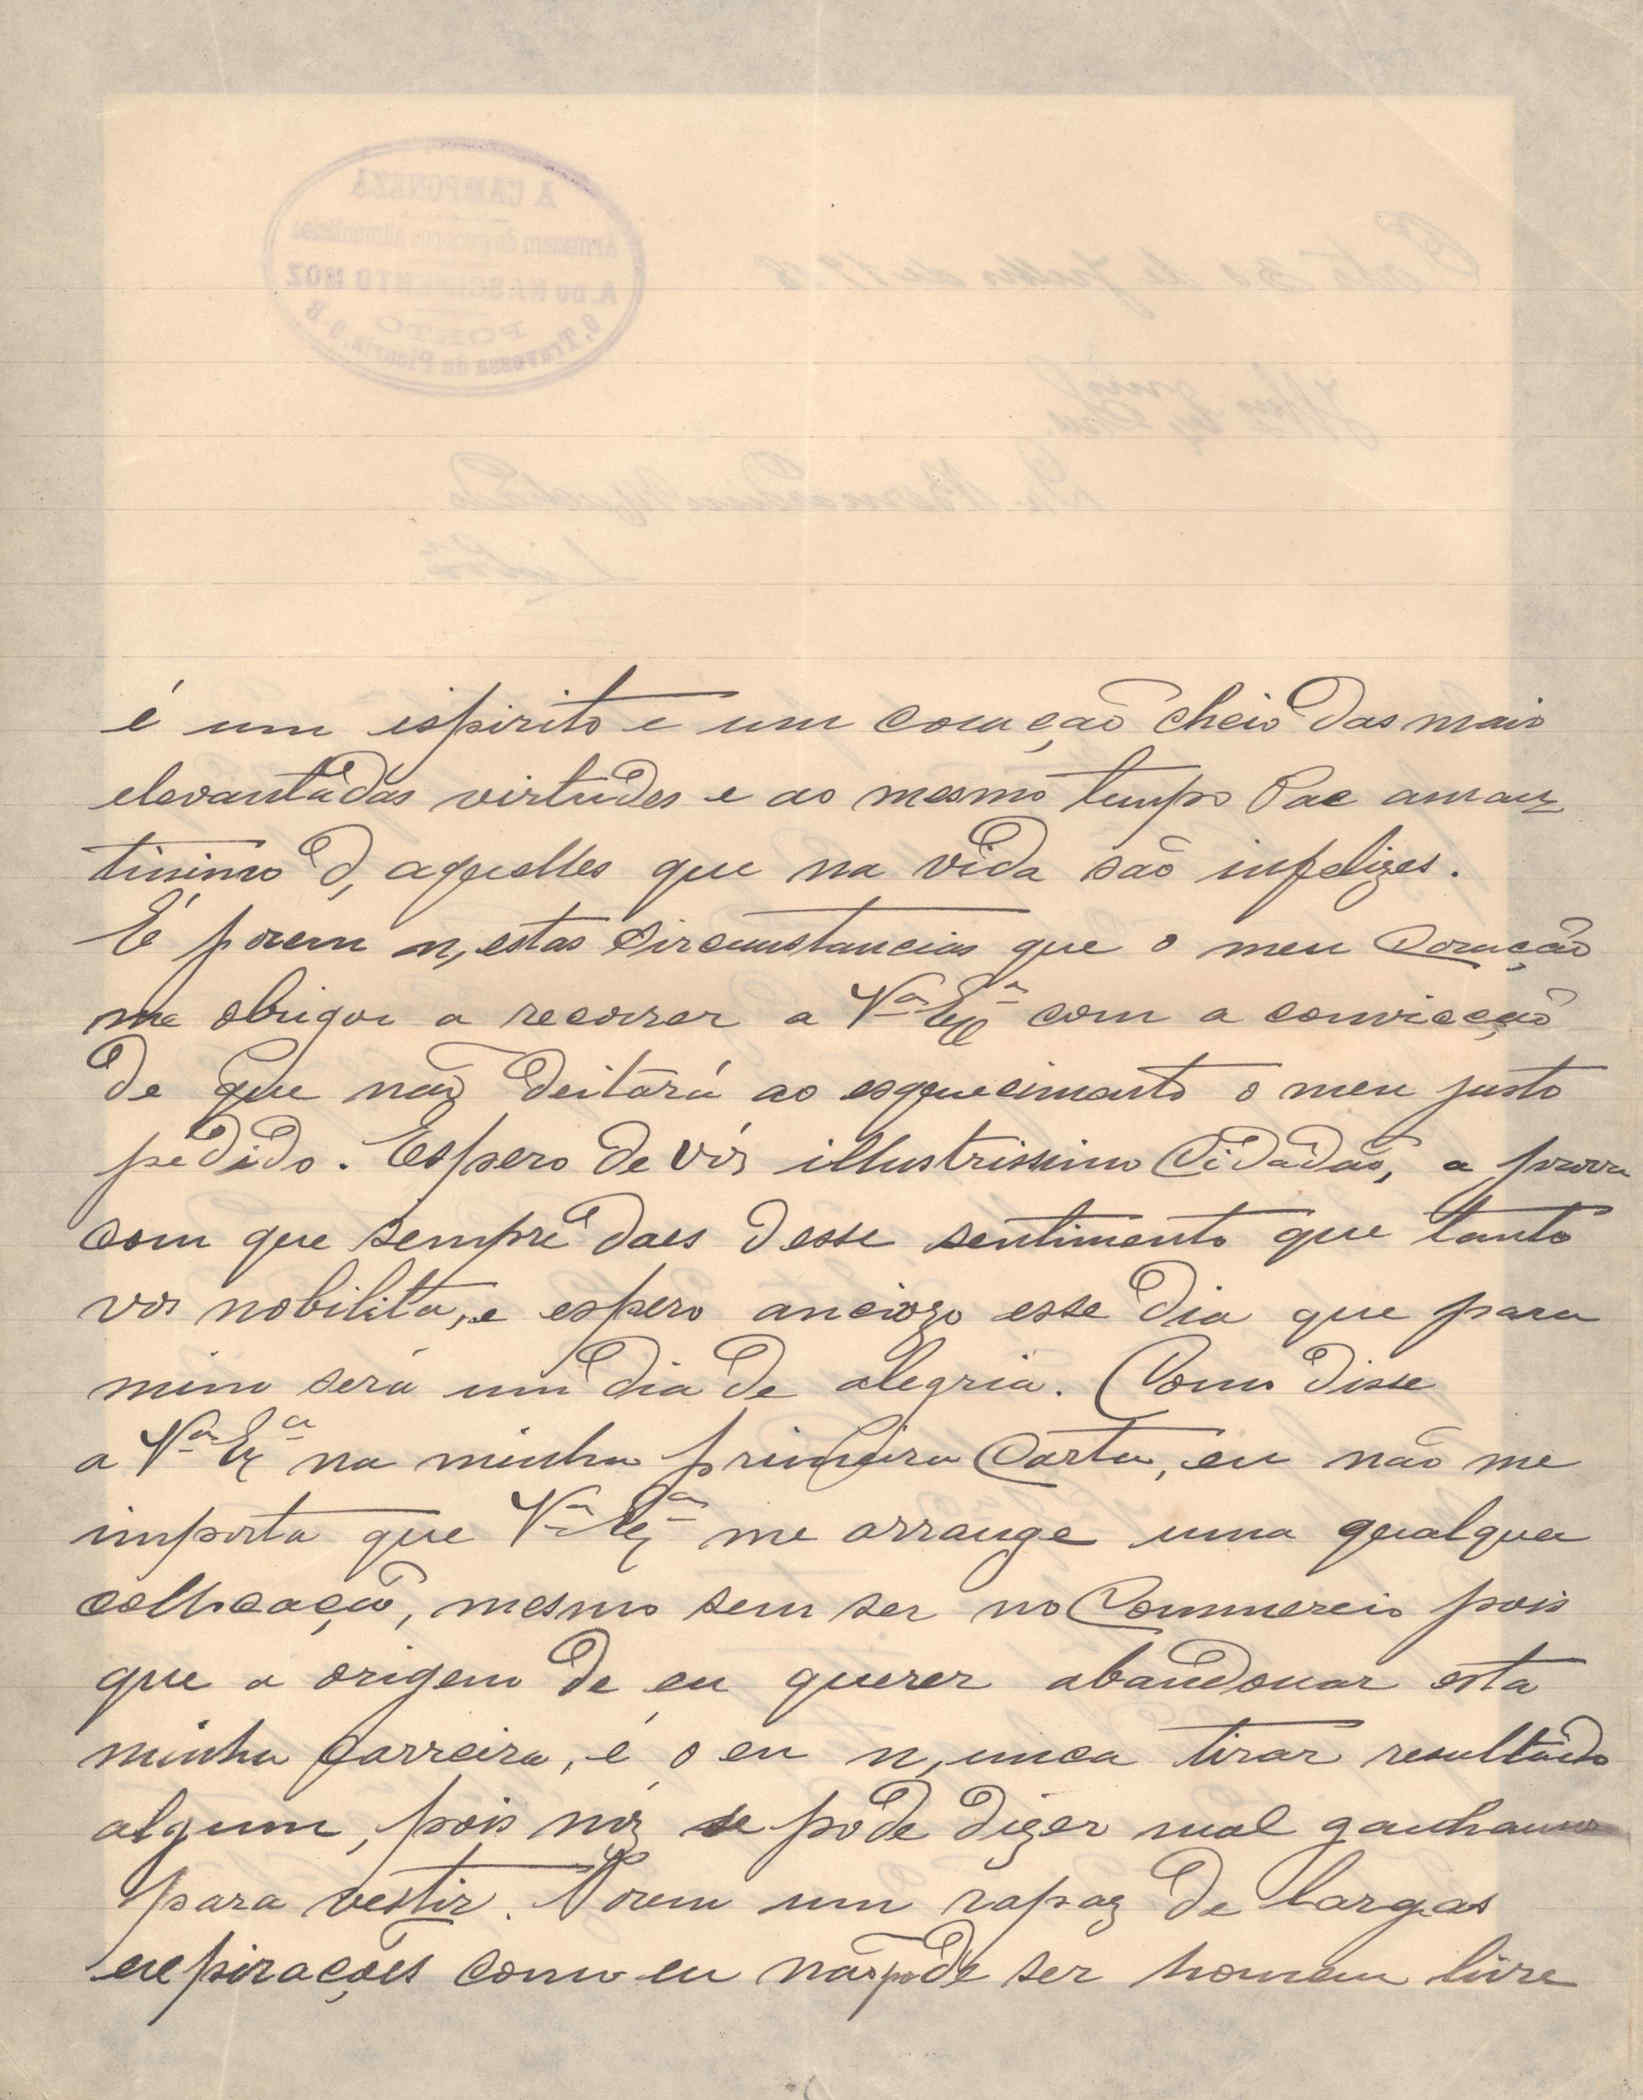 é um ispirito e um coração cheio das mais
elevantadas virtudes e ao mesmo tempo Pae aman
tissimo d, aquelles que na vida são infelizes.
É porém n, estas circumstancias que o meu coração
me obrigou a recorrer a Vª Exª com a convicção
de que não deitará ao esquecimento o meu justo
pedido. Espero de vós illustrissimo Cidadão, a prova
com que sempre daes desse sentimento que tanto
vos nobilita, e espero anciozo esse dia que para
mim será um dia de alegria. Como disse
a Vª Exª na minha primeira Carta, eu não me
importa que Vª Exª me arrange uma qualquer
collocação, mesmo sem ser no Commercio pois
que a origem de eu querer abandonar esta
minha carreira, é o eu n, unca tirar resultado
algum, pois nóz se póde dizer mal ganhamos
para vestir. Porem um rapaz de largas
como eu não pode ser homem livre
A CAMPONEZA
Armazem de generos alimenticios
A. DO NASCIMENTO
PORTO
Porto 30 de Julho de
Dr. Bernardino Machado
Lisboa